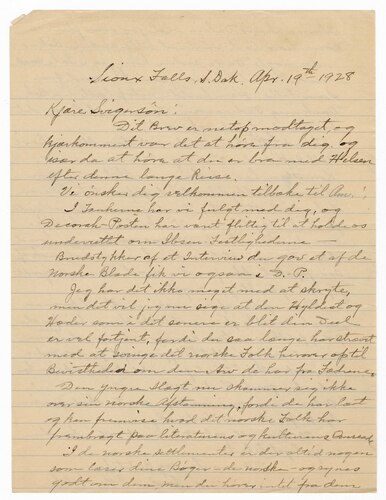 Sioux Falls, S. Dak. Apr. 19th 1928
Kjære Svigersön!
Dit Brev er netop modtaget, og
kjærkomment var det at höre fra dig, og
især da at höre at du er bra med Helsen
efter denne lange Reise.
Vi önsker dig velkommen tilbake til Am.!
I Tankerne har vi fulgt med dig, og
Decorah-Posten har vært flittig til at holde os
underrettet om Ibsen Festlighederne —
Brudstykker af et Interview du gav et af de
Norske Blade fik vi ogsaa i D.-P.
Jeg har det ikke meget med at skryte,
men det vil jeg si at den Hyldest og
Heder som i det senere er blit din Del
er vel fortjent, fordi du saa lenge har strævt
med at bringe det norske Folk herover op til
Bevisthed om den Arv de har fra Fædrene.
Den yngre Slægt nu skammer sig ikke
over sin norske Afstamning, fordi de har læst
og kan fremvise hvad det norske Folk har
frembragt paa literaturens og kulturens
I de norske settlementer er der altid nogen
som læser dine Böger — de norske — og synes
godt om dem, men du hörer intet fra dem